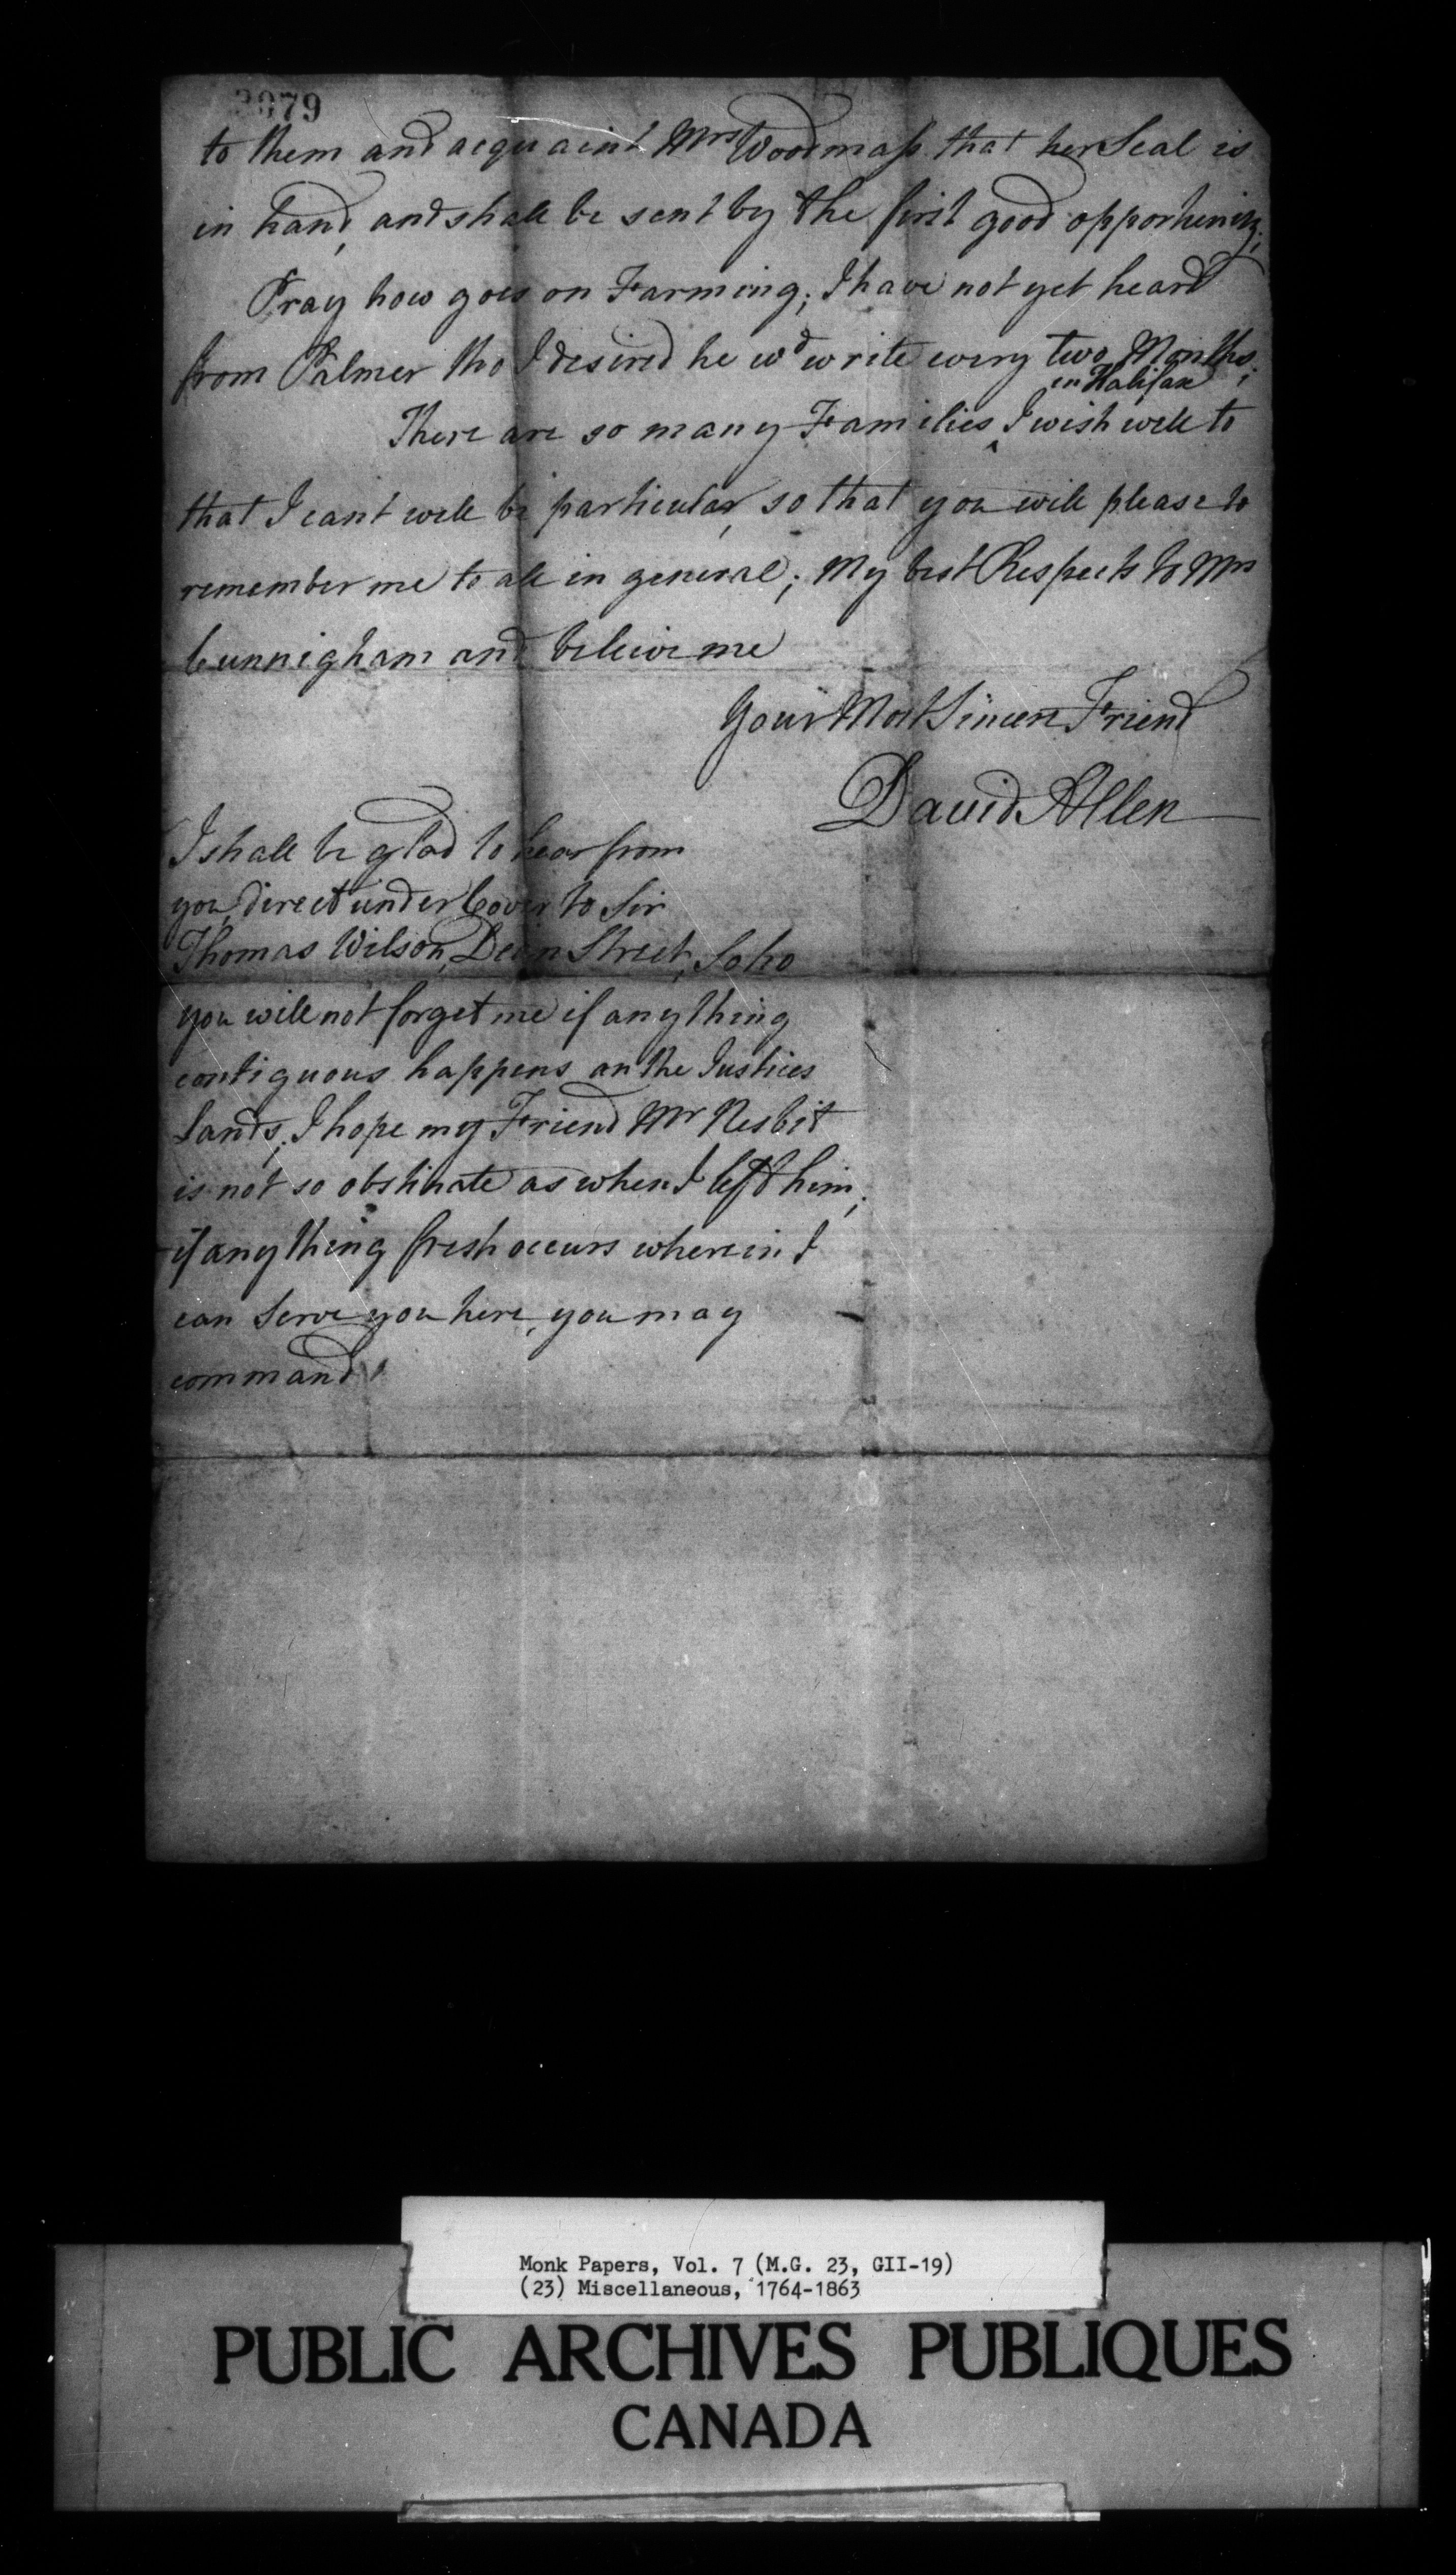 3079
to them and acquaint Mrs Woodmass that her Seal is
in hand, and shall be sent by the first good opportunity;
Pray how goes on Farming; I have not yet heard
from Palmer tho I desired he wd write every two Months;
in Halifax
There are so many Families ^ I wish well to
that I cant well be particular, so that you will please to
remember me to all in general; My best Respects to Mrs
Cunnigham and beleive me
Your Most Sincere Friend
David Allen
I shall be glad to hear from
you, direct under Cover to Sir
Thomas Wilson, Dean Street, Soho
you will not forget me if any thing
contiguous happens on the Justices
Lands; I hope my Friend Mr Nesbit
is not so obstinate as when I left him;
if any thing fresh occurs wherein I
can Serve you here, you may
command
Monk Papers, Vol. 7 (M.G. 23, GII-19)
(23) Miscellaneous, 1764-1863
PUBLIC ARCHIVES PUBLIQUES
CANADA